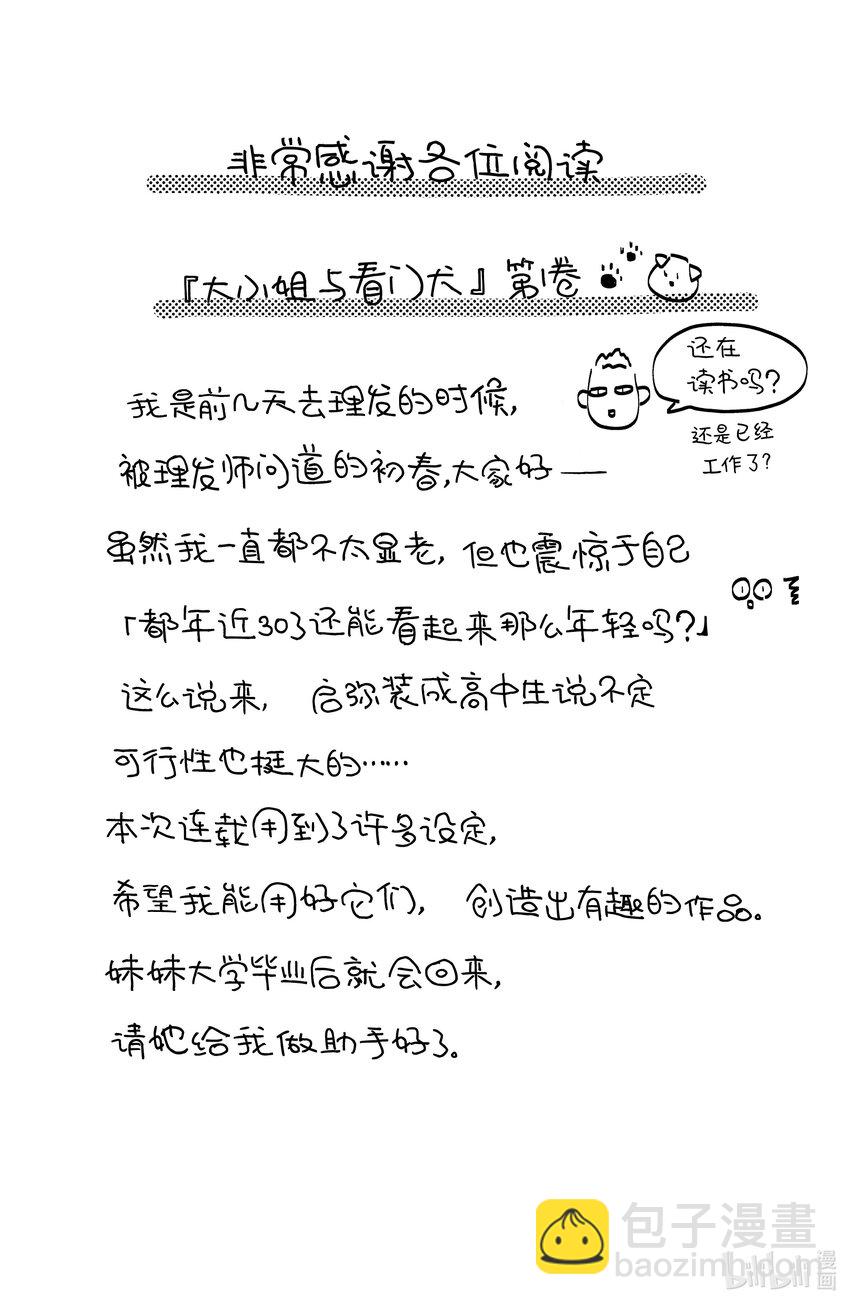 非常感谢各位阅读
『大小姐与看门犬』第1卷
还在
读书吗?
还是已经
工作了?
我是前几天去理发的时候,
被理发师问道的初春,大家好——
虽然我一直都不太显老,但也震惊于自己
「都年近30了还能看起来那么年轻吗?」
这么说来, 启弥装成高中生说不定
可行性也挺大的……
本次连载用到了许多设定,
希望我能用好它们, 创造出有趣的作品。
妹妹大学毕业后就会回来,
请她给我做助手好了。
包子漫畫
baozimh.com
bilibili
漫画